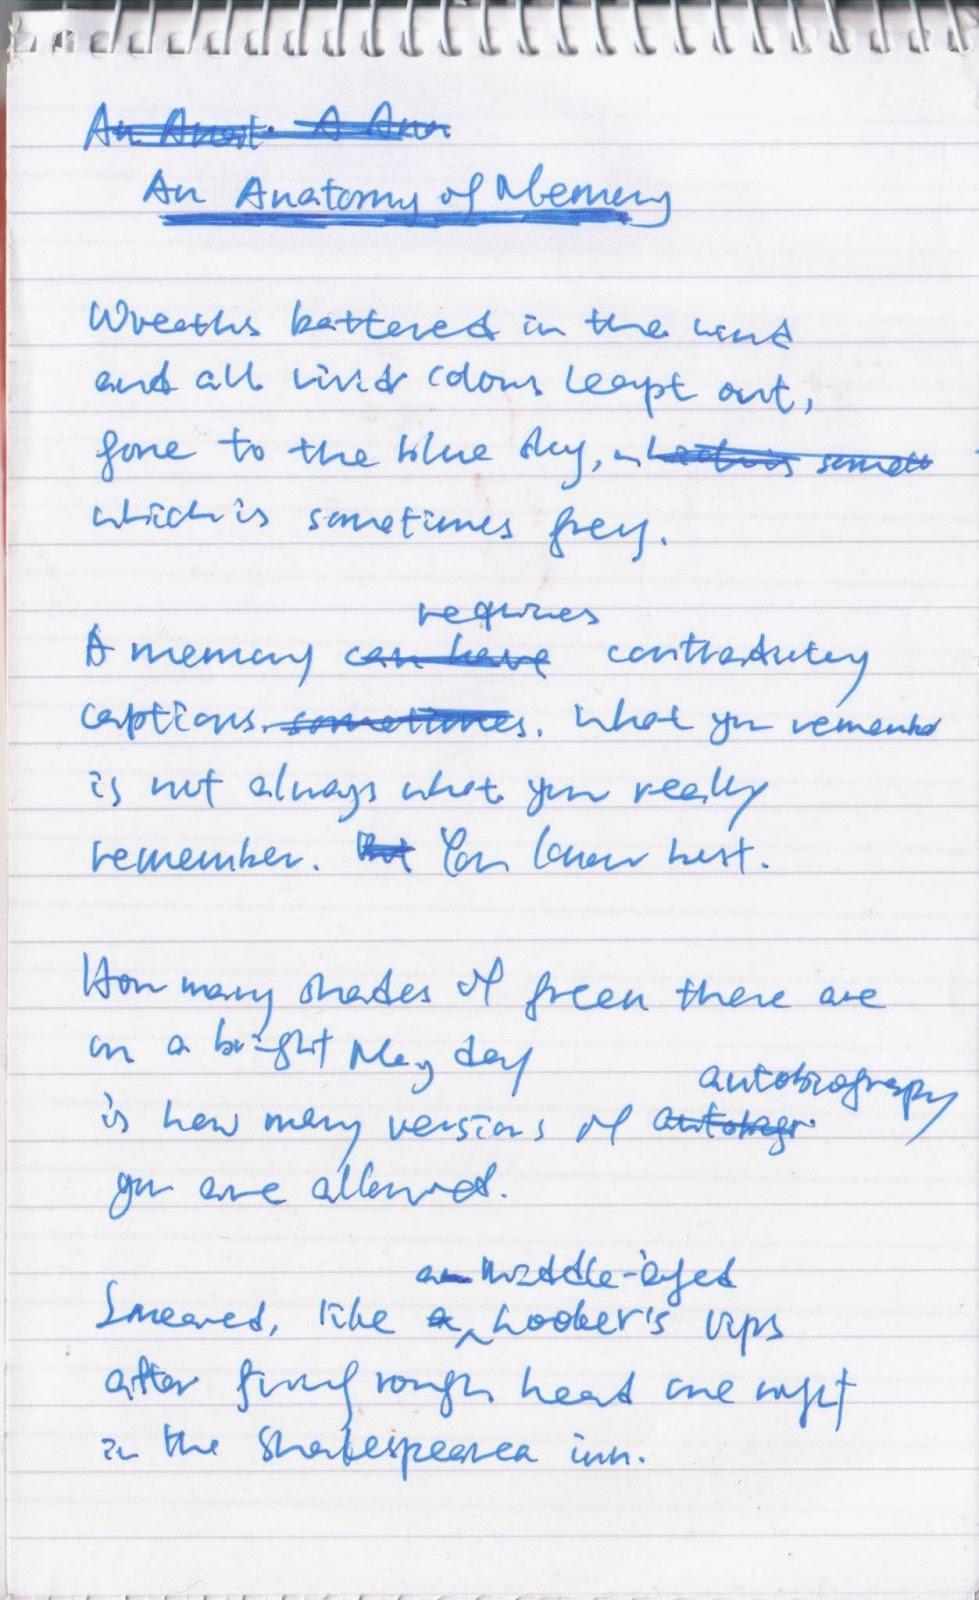 An Anat. A Ana
An Anatomy of Memory
Wreaths battered in the wind
and all vivid colours leapt out,
gone to the blue sky, which is somet
which is sometimes grey.
requires
A memory can have contradictory
captions. sometimes. What you remember
is not always what you really
remember. But You know best.
How many shades of green there are
on a bright May day
is how many versions of autobiogr.
autobiography
you are allowed.
a middle-aged
Smeared, like a hooker's lips
after giving rough head one night
in the Shakespearea inn.